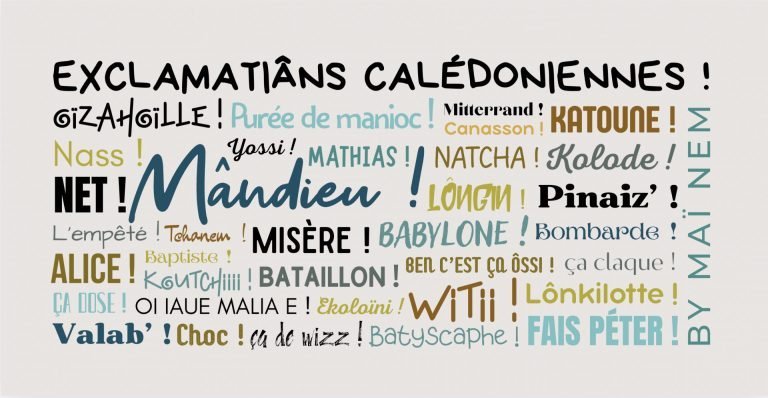 EXCLAMATIÂNS CALÉDONIENNES !
OÏZAHOÏLLE ! Purée de manioc ! Mitterrand ! Canasson ! KATOUNE !
Nass ! Yossi ! MATHIAS ! NATCHA ! Kolode !
NET ! Mândieu ! LÔNGIN ! Pinaiz' !
L'empêté ! Tchanem ! MISÈRE ! BABYLONE ! Bombarde !
ALICE ! Baptiste ! KOUTCHiiii ! BATAILLON ! BEN C'EST ÇA ÔSSI ! ça claque !
ÇA DOSE ! OI IAUE MALIA E ! Ekoloïni ! WiTii ! Lônkilotte !
Valab' ! Choc ! ça de wizz ! Batyscaphe ! FAIS PÉTER !
BY MAÏ NEM